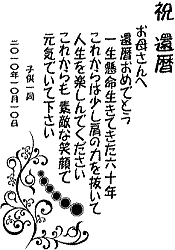 祝 還暦
お母さんへ
還暦おめでとう
一生懸命生きてきた六十年
これからは少し肩の力を抜いて
人生を楽しんでください
これからも 素敵な笑顔で
元気でいて下さい
子供一同
二〇一〇年一〇月一〇日